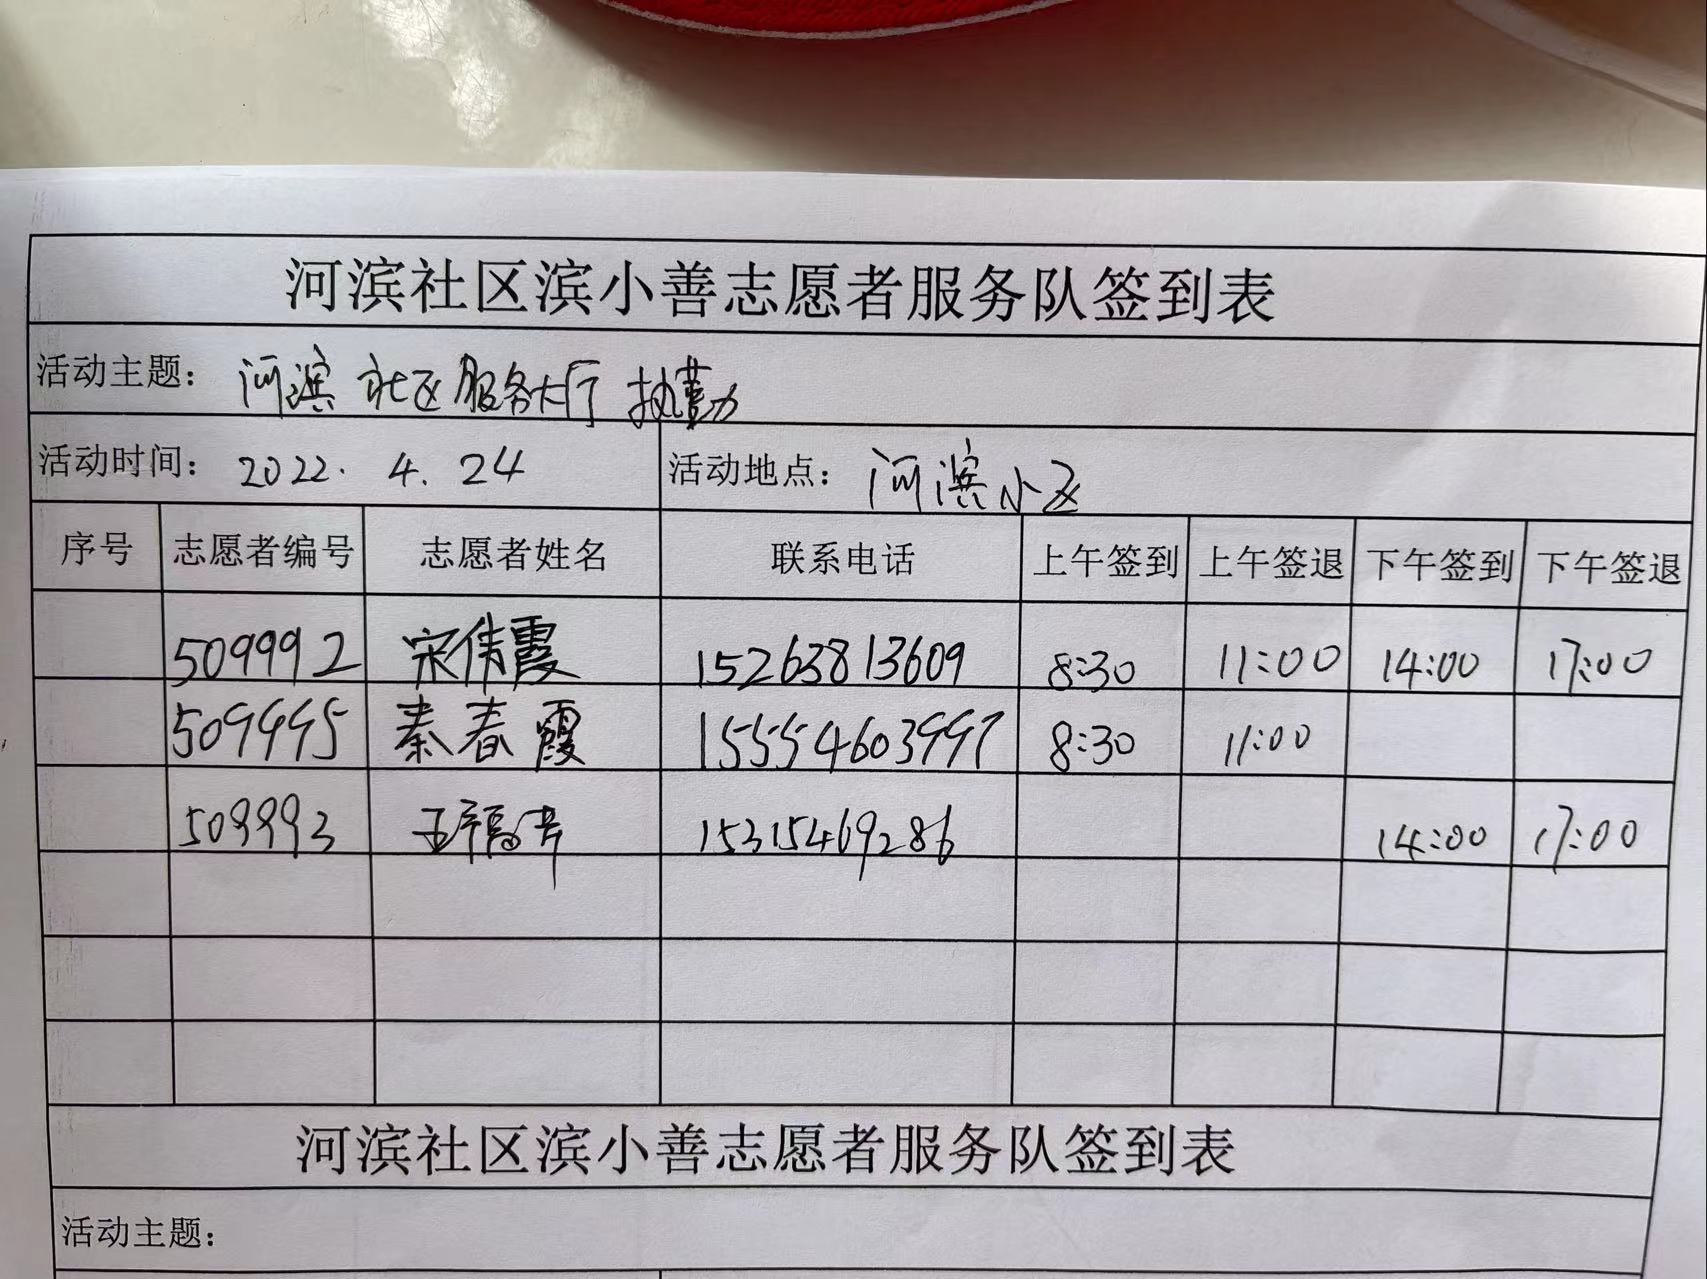 河滨社区滨小善志愿者服务队签到表
活动主题： 河滨社区服务大厅执勤
活动时间： 2022. 4. 24 活动地点： 河滨小区
序号 志愿者编号 志愿者姓名 联系电话 上午签到 上午签退 下午签到 下午签退
509992 宋伟霞 15263813609 8:30 11:00 14:00 17:00
509995 秦春霞 15554603997 8:30 11:00
509993 15315469286 14:00 17:00
河滨社区滨小善志愿者服务队签到表
活动主题：